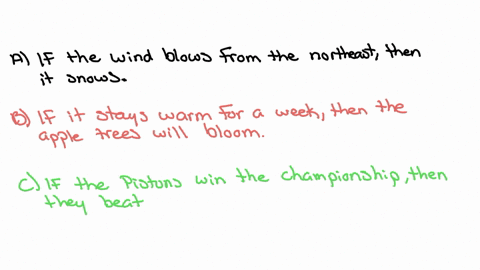 A) If the wind blows from the northeast, then
it snows.
B) If it stays warm for a week, then the
apple trees will bloom.
C) If the Pistons win the championship, then
they beat